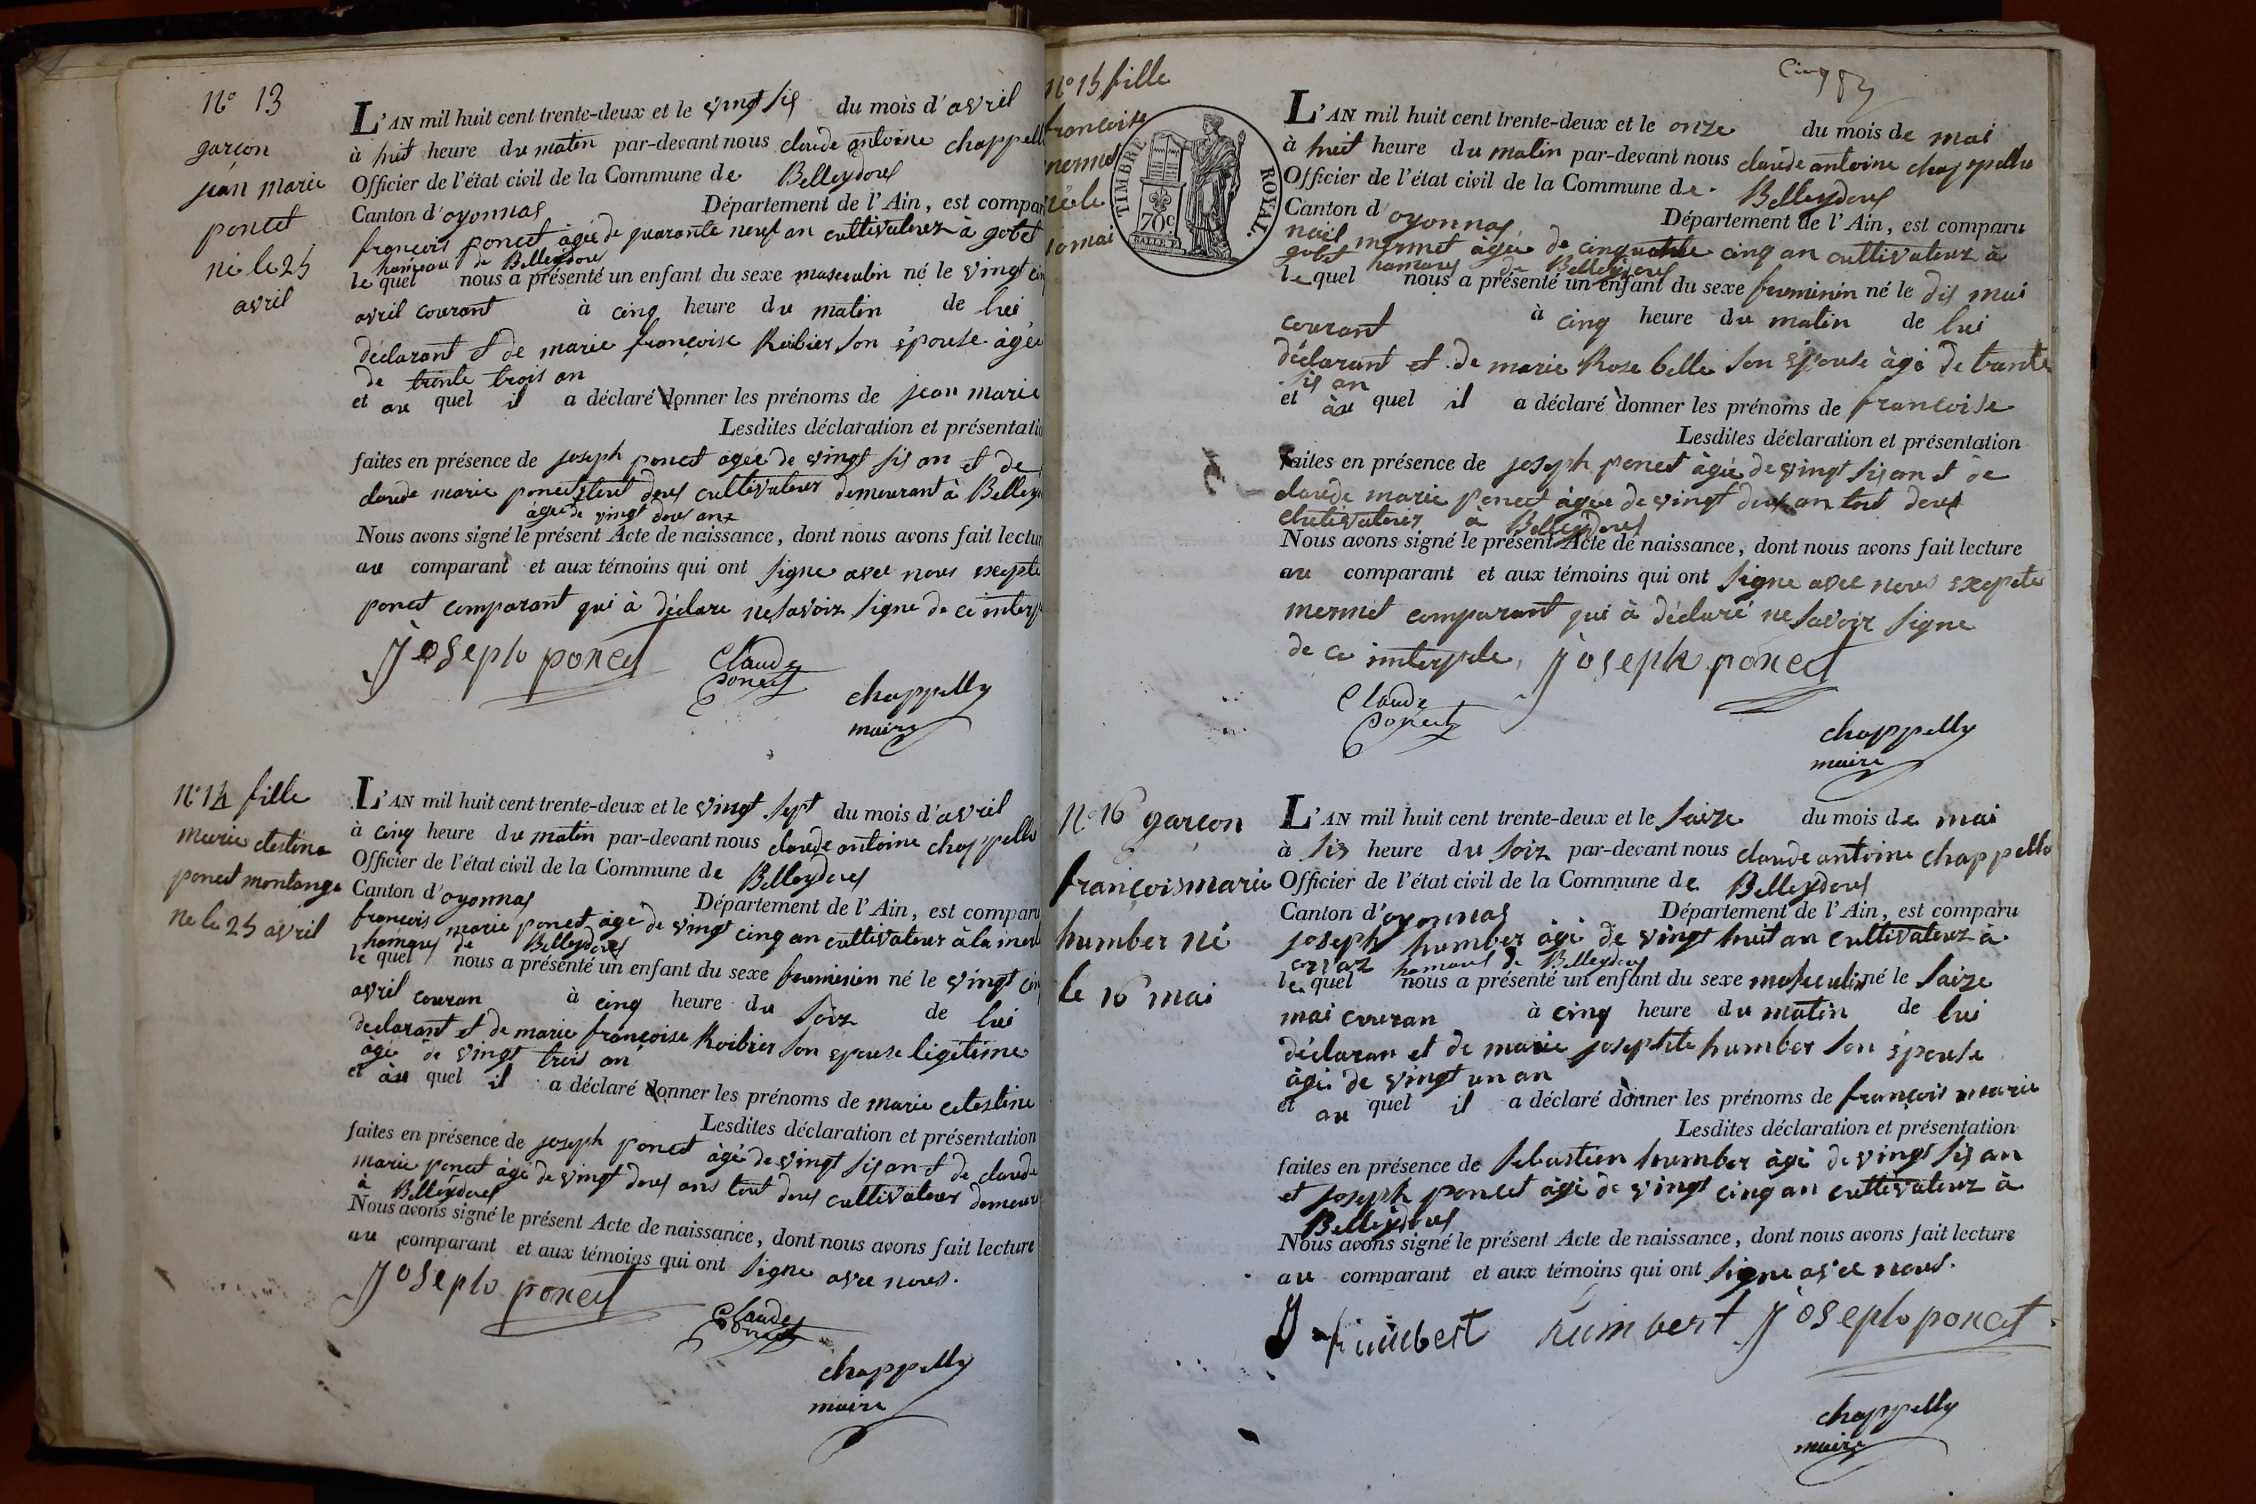 N° 13
garcon
jean marie
poncet
né le 25
avril
L'AN mil huit cent trente-deux et le vingt six du mois d'avril
à huit heure du matin par-devant nous claude antoine chappelle
Officier de l'état civil de la Commune de Belleydoux
Canton d'oyonnas Département de l'Ain, est compar
francois poncet âgée de quarante neuf an cultivateur à gobet
hameau de Belleydoux
le quel nous a présenté un enfant du sexe masculin né le vingt cin
avril courant à cinq heure du matin de lui
déclarant et de marie françoise Roibier son épouse âgée
de trente trois an
et au quel il a déclaré donner les prénoms de jean marie
Lesdites déclaration et présentatio
faites en présence de joseph poncet âgée de vingt six an et de
claude marie poncet tout deux cultivateur demeurant à Belley
âgée de vingt deux ans
Nous avons signé le présent Acte de naissance, dont nous avons fait lectur
au comparant et aux témoins qui ont signe avec nous excepte
poncet comparant qui à déclare ne savoir signe de ce interp
joseph poncet
Claude
poncet
chappelly
maire
N° 14 fille
marie celestine
poncet montange
né le 25 avril
L'AN mil huit cent trente-deux et le vingt sept du mois d'avril
à cinq heure du matin par-devant nous claude antoine chappelle
Officier de l'état civil de la Commune de Belleydoux
Canton d'oyonnas Département de l'Ain, est comparu
francois marie poncet âgé de vingt cinq an cultivateur à la
hamaux de Belleydoux
le quel nous a présenté un enfant du sexe feuminin né le vingt cin
avril couran à cinq heure du soir de lui
declarant et de marie françoise Roibier son epouse legitime
âgé de vingt trois an
et au quel il a déclaré donner les prénoms de marie celestine
Lesdites déclaration et présentation
faites en présence de joseph poncet âgé de vingt six an et de claude
marie poncet âgé de vingt deux ans tout deux cultivateur demeur
à Belleydoux
Nous avons signé le présent Acte de naissance, dont nous avons fait lecture
au comparant et aux témoins qui ont signe avec nous.
joseph poncet
Claude
poncet
chappelly
maire
Cinq
N° 15 fille
francoise
mermet
né le
10 mai
TIMBRE ROYAL.
70c
L'AN mil huit cent trente-deux et le onze du mois de mai
à huit heure du matin par-devant nous claude antoine chappelle
Officier de l'état civil de la Commune de Belleydoux
Canton d'oyonnas Département de l'Ain, est comparu
noël mermet âgée de cinquante cinq an cultivateur à
gobet hamaux de Belleydoux
le quel nous a présenté un enfant du sexe feuminin né le dix mai
courant à cinq heure du matin de lui
déclarant et de marie Rose belle son épouse âgé de trante
six an
et au quel il a déclaré donner les prénoms de francoise
Lesdites déclaration et présentation
faites en présence de joseph poncet âgée de vingt six an et de
claude marie poncet âgée de vingt deux an tout deux
cultivateur à Belleydoux
Nous avons signé le présent Acte de naissance, dont nous avons fait lecture
au comparant et aux témoins qui ont signe avec nous excepte
mermet comparant qui à déclaré ne savoir signe
de ce interpele, joseph poncet
Claude
poncet
chappelly
maire
N° 16 garcon
françois marie
humber né
le 16 mai
L'AN mil huit cent trente-deux et le saize du mois de mai
à six heure du soir par-devant nous claude antoine chappelle
Officier de l'état civil de la Commune de Belleydoux
Canton d'oyonnas Département de l'Ain, est comparu
joseph humber âgé de vingt huit an cultivateur à
orvaz hamaux de Belleydoux
le quel nous a présenté un enfant du sexe masculin né le saize
mai couran à cinq heure du matin de lui
déclaran et de marie josephte humber son épouse
âgé de vingt un an
et au quel il a déclaré donner les prénoms de françois marie
Lesdites déclaration et présentation
faites en présence de sebastien humber âgé de vingt six an
et joseph poncet âgé de vingt cinq an cultivateur à
Belleydoux
Nous avons signé le présent Acte de naissance, dont nous avons fait lecture
au comparant et aux témoins qui ont signe avec nous.
J humbert humbert joseph poncet
chappelly
maire